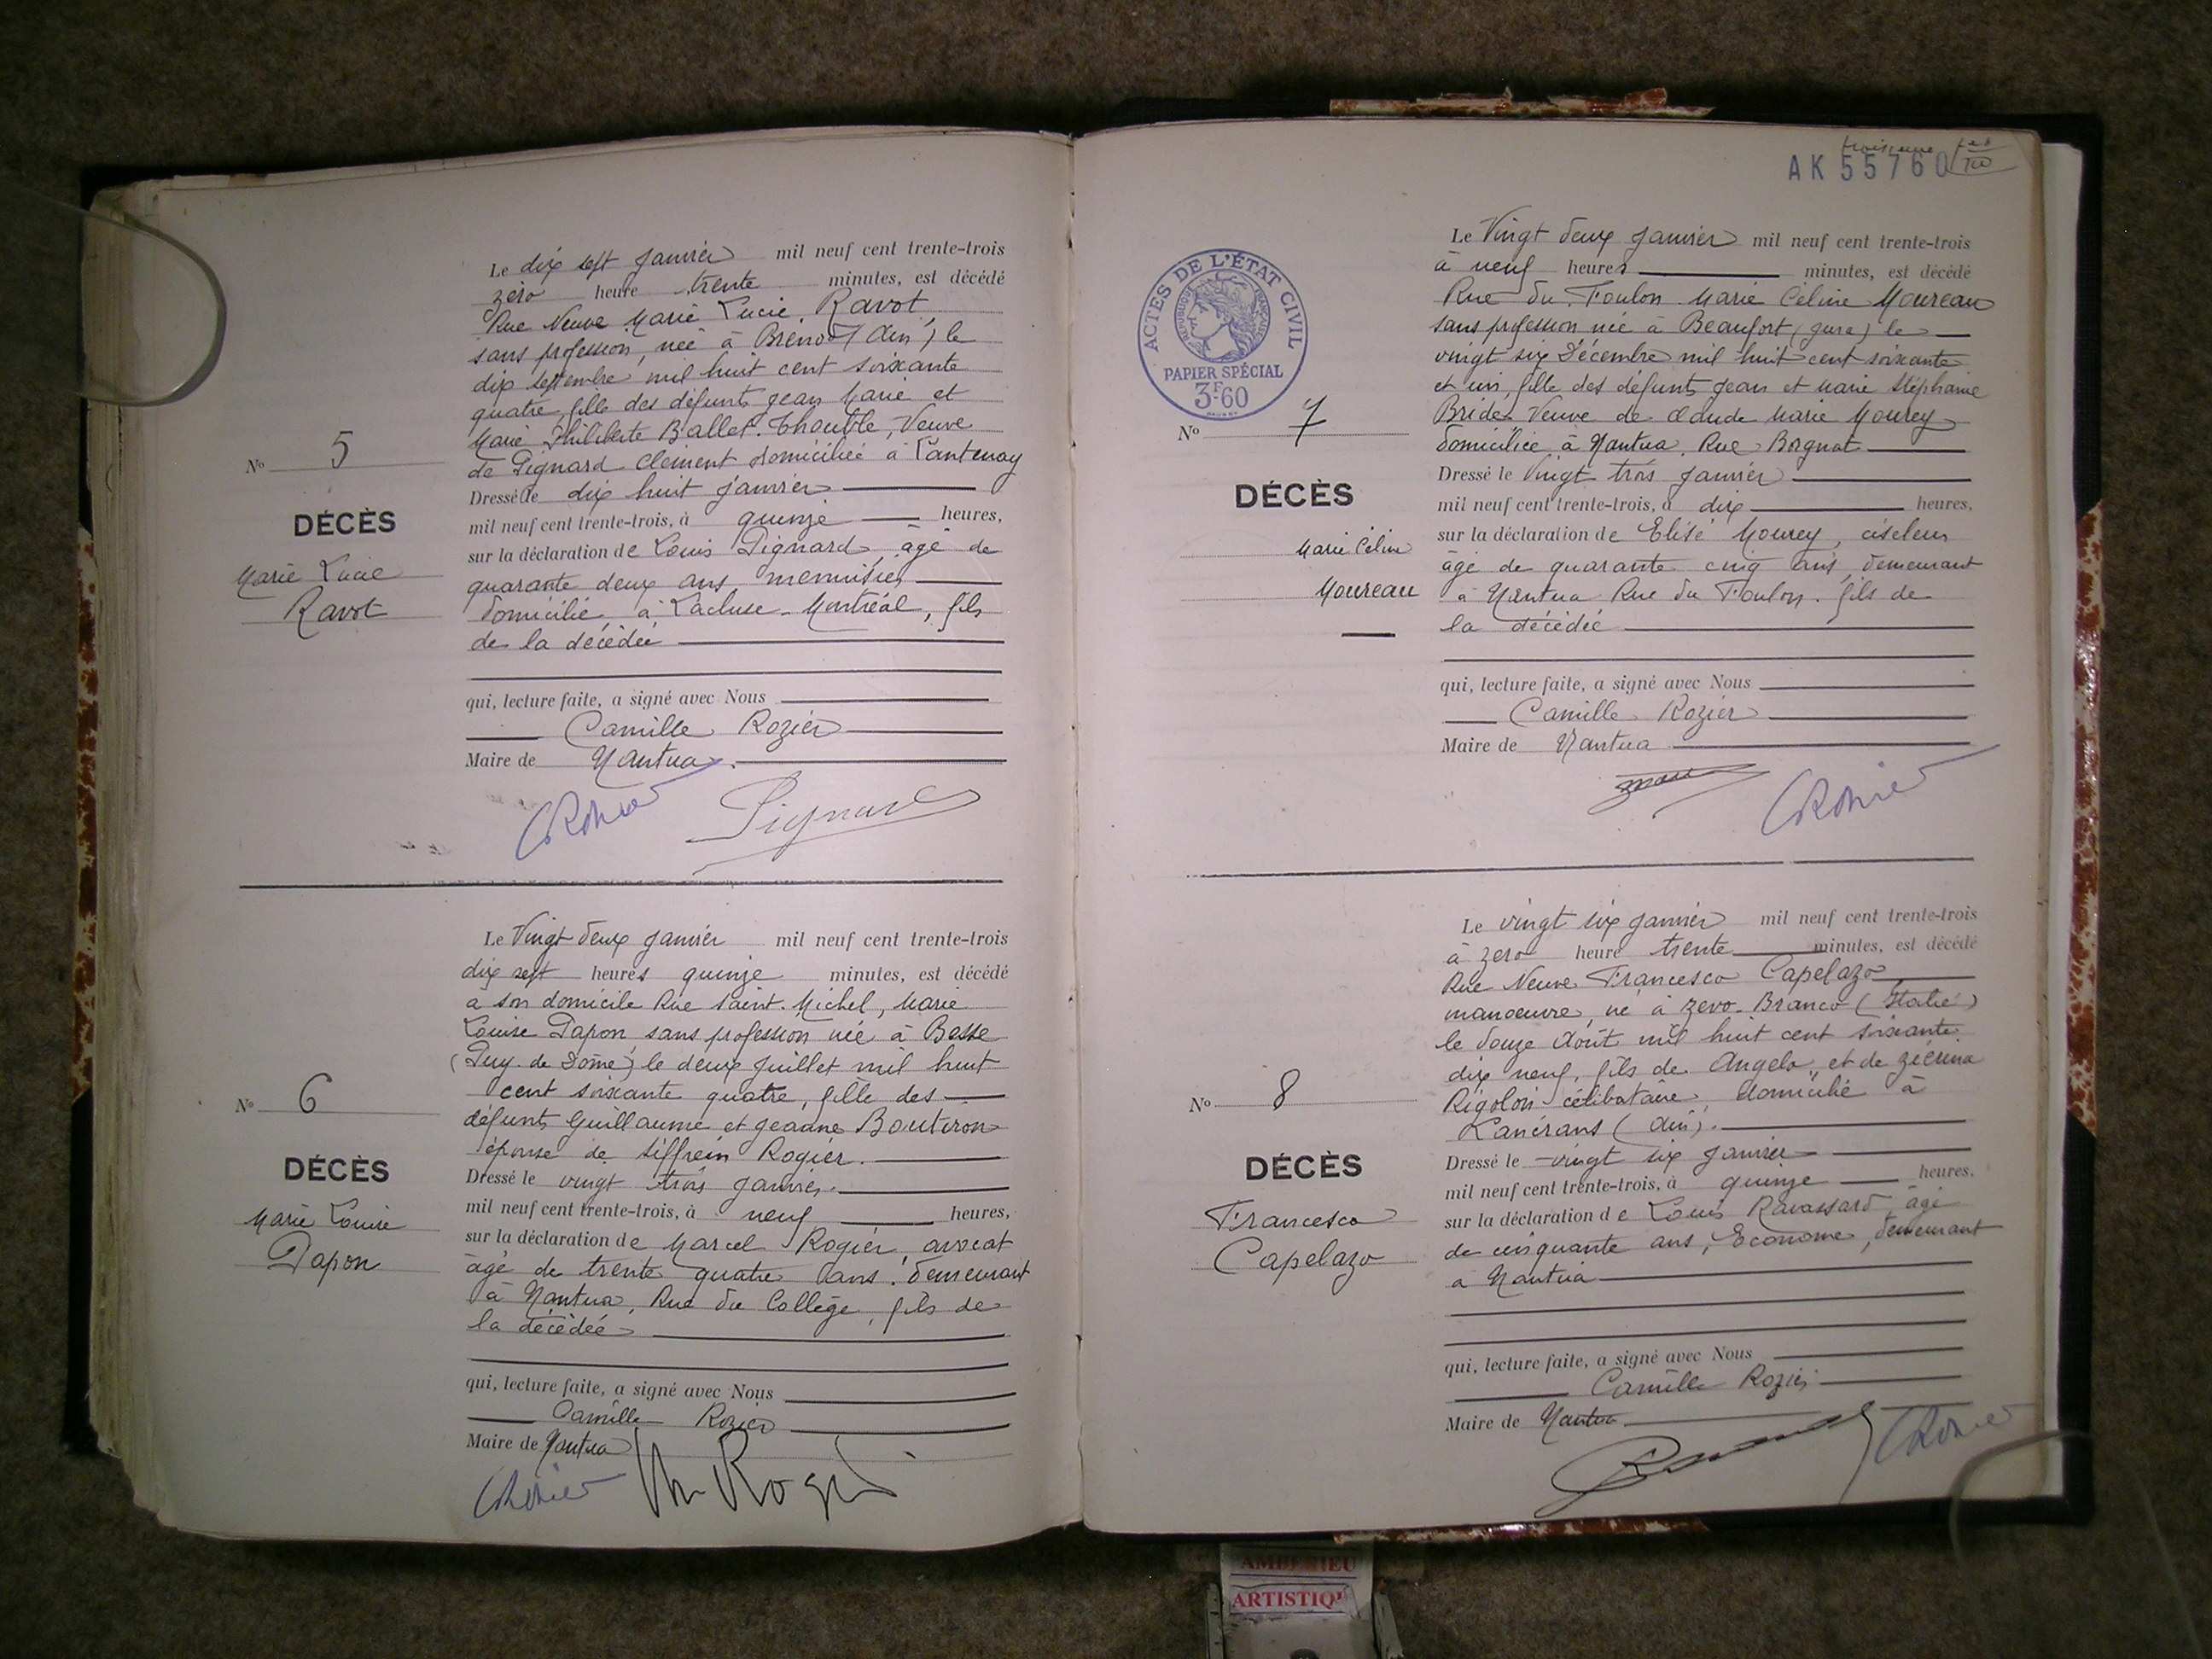 Le dix sept Janvier mil neuf cent trente-trois
zéro heure trente minutes, est décédé
Rue Neuve Marie Lucie Ravot,
sans profession, née à Brenod (Ain), le
dix septembre mil huit cent soixante
quatre, fille des défunts Jean Marie et
Marie Philiberte Ballet-Thouble, Veuve
de Pignard Clément domiciliée à Lantenay
Dressé le dix huit janvier
mil neuf cent trente-trois, à quinze heures,
sur la déclaration de Louis Pignard, âgé de
quarante deux ans menuisier
domicilié à Lacluse-Montréal, fils
de la décédée
qui, lecture faite, a signé avec Nous
Camille Rozier
Maire de Nantua.
CRozier Pignard
No 5
DÉCÈS
Marie Lucie
Ravot
Le Vingt deux janvier mil neuf cent trente-trois
dix sept heures quinze minutes, est décédé
à son domicile Rue Saint-Michel, Marie
Louise Papon, sans profession née à Besse
(Puy de Dôme) le deux Juillet mil huit
cent soixante quatre, fille des
défunts Guillaume et Jeanne Boutiron
épouse de Siffrein Rogier.
Dressé le vingt trois janvier
mil neuf cent trente-trois, à neuf heures,
sur la déclaration de Marcel Rogier, avocat
âgé de trente quatre ans, demeurant
à Nantua, Rue du Collège, fils de
la décédée
qui, lecture faite, a signé avec Nous
Camille Rozier
Maire de Nantua
CRozier M Rogier
No 6
DÉCÈS
Marie Louise
Papon
troisième
AK 55760
ACTES DE L'ÉTAT CIVIL
RÉPUBLIQUE FRANÇAISE
PAPIER SPÉCIAL
3F60
Le Vingt deux Janvier mil neuf cent trente-trois
à neuf heures minutes, est décédé
Rue du Foulon Marie Céline Moureau
sans profession née à Beaufort (Jura) le
vingt six Décembre mil huit cent soixante
et un, fille des défunts Jean et Marie Stéphanie
Bride, Veuve de Claude Marie Mourey
domiciliée à Nantua, Rue Borgnat
Dressé le Vingt trois Janvier
mil neuf cent trente-trois, à dix heures,
sur la déclaration de Elisé Mourey, ciseleur
âgé de quarante cinq ans, demeurant
à Nantua Rue du Foulon. fils de
la décédée
qui, lecture faite, a signé avec Nous
Camille Rozier
Maire de Nantua
CRozier
No 7
DÉCÈS
Marie Céline
Moureau
Le vingt six janvier mil neuf cent trente-trois
à zéro heure trente minutes, est décédé
Rue Neuve Francesco Capelazo
manoeuvre, né à Zevo-Branco (Italie)
le douze Août mil huit cent soixante
dix neuf, fils de Angelo, et de
Rigolon célibataire, domicilié à
Lancrans (Ain).
Dressé le vingt six janvier
mil neuf cent trente-trois, à quinze heures,
sur la déclaration de Louis Ravassard âgé
de cinquante ans, Econome, demeurant
à Nantua
qui, lecture faite, a signé avec Nous
Camille Rozier
Maire de Nantua
CRozier
No 8
DÉCÈS
Francesco
Capelazo
AMBERIEU
ARTISTIQU